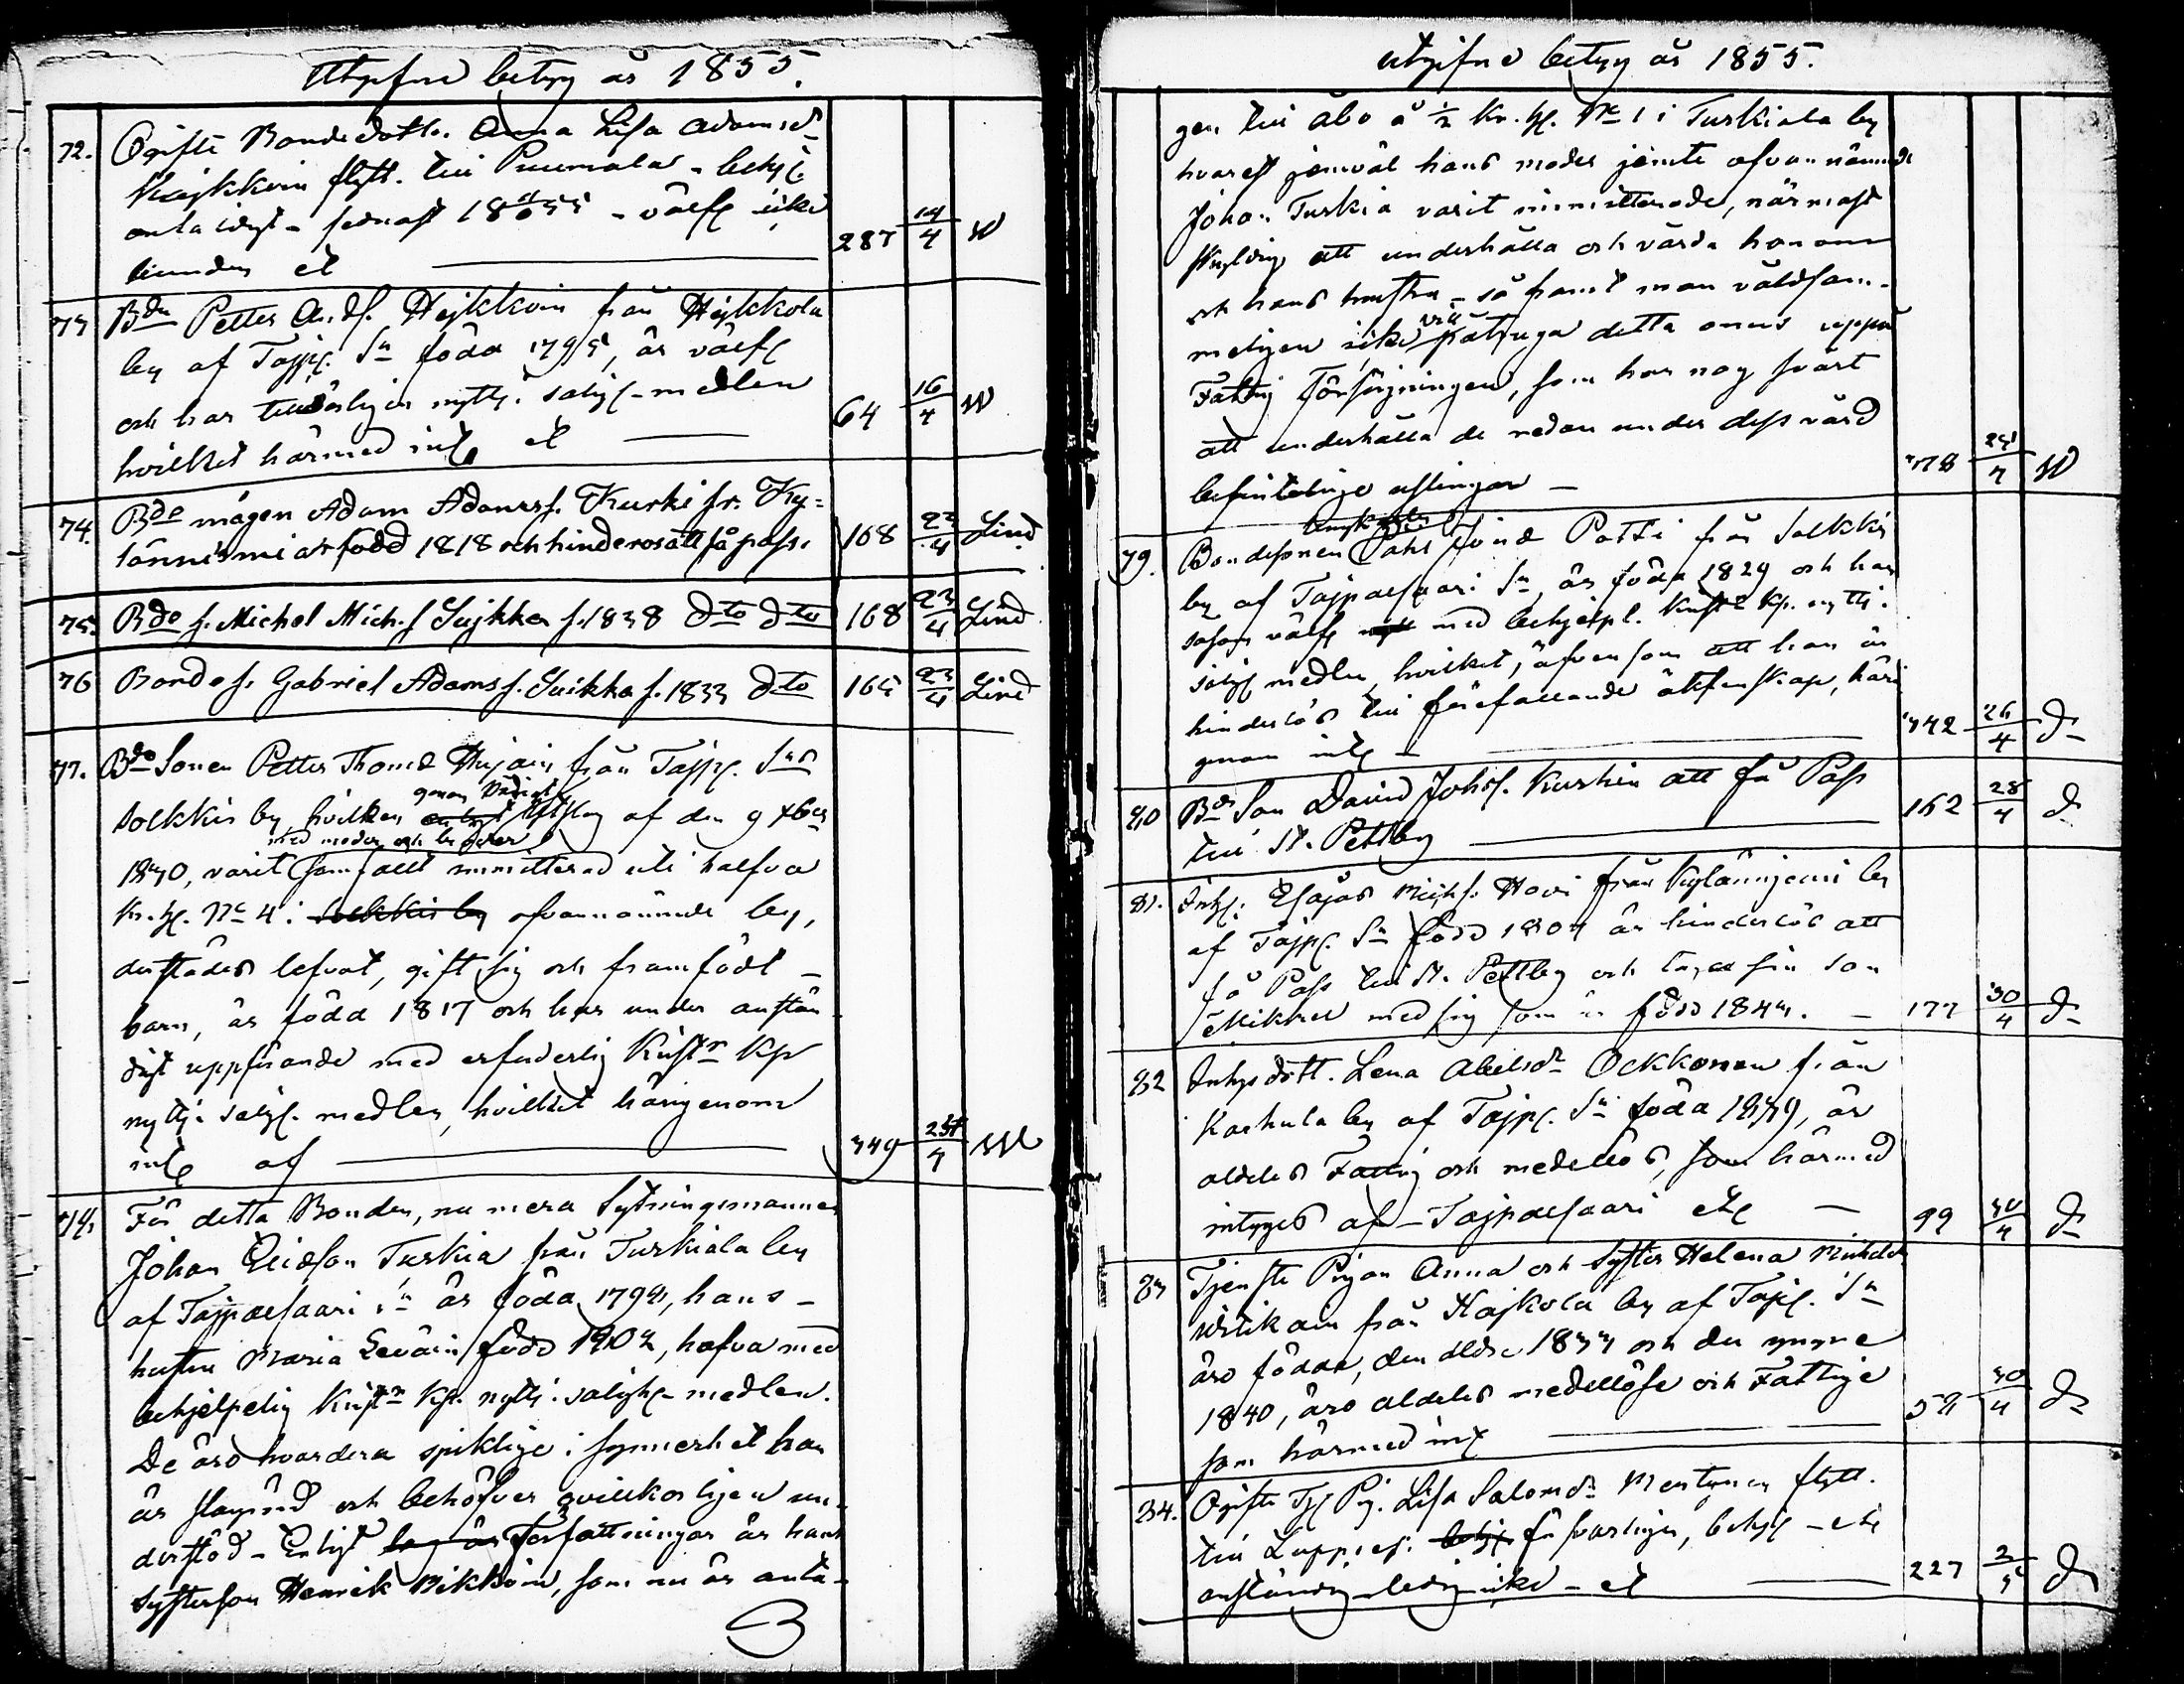 Utgifne betyg år 1855.
72. Ogifte Bondedottr. Anna Lisa Adamsdr
flytt. till Puumala - behj.
senast 1855 - välfr. icke
bunden et 287 14/4 W
73 Bdn Petter Andf. Hejkkoin från Hejkkola
by af Tajp. Sn född 1795, är välfr
och har tillbörligen nyttj. saligh.-medlen
hvilket härmed int. et 64 16/4 W
74. Bde mågen Adam Adamsf. Kurki fr. Ky=
länniemi är född 1818 och hinderlös att få pass. 168 23/4 Lind
75. Bde f. Michel Mich.f Suikka f. 1838 dto dto 168 23/4 Lind
76 Bonde f. Gabriel Adamsf. Suikka f. 1833 dto 165 23/4 Lind
77. Bde Sonen Petter Thomf från Tajp. Sns
Solkkis by, hvilken genom Utslag af den 9
med moder och broder
1840, varit samfält immitterad uti halfva
Kr. H. No 4 i Solkkis by ofvannämnde by,
derstädes lefvat, gift sig och framfödt -
barn, är född 1817 och har under anstän
digt uppförande med erforderlig Kristn Kp
nyttj. salgh. medlen, hvilket härigenom
int. af 349 W
78. För detta Bonden, nu mera Sytningsmannen
Johan Ericsson Turkia från Turkiala by
af Tajpalsaari Sn är född 1798, hans -
hustru Maria Leväin född 1802, hafva med
behjelpelig Kristn Kp. nyttj. saligh.- medlen.
De äro hvardera sjuklige i synnerhet han
är och behöfver ovillkorligen un-
derstöd - Enligt lag är Författningar är hans
systerson Henrik Mikkoin, som nu är antä-
utgifne betyg år 1855.
gen till åbo å ½ Kr. H. No 1 i Turkiala by
hvarest jemväl hans moder jemte ofvannämnde
Johan Turkia varit immitterade, närmast
skyldig att underhålla och vårda honom
och hans hustru - så framt man våldsam-
vill
meligen icke påtruga detta onus uppå
Fattig Försörjningen, som har nog svårt
att underhålla de redan under dess vård
befinteliga uslingar - 78 W
79. Bondesonen Påhl Patsi från Solkkis
by af Tajpalsaari Sn, är född 1829 och har
såsom välfr med behjelpl. Kristn Kp. nyttj.
saligh. medlen, hvilket, äfvensom att han är
hinderlös till förefallande äktenskap, häri
genom int. - 342 26/4 D
80 Bde Son David Johsf. Kurkin att få Pass
till St. Pettbg 162 28/4 D
81. Inhys. Esajas Michf. Hovi från Kylänniemi by
af Tajp. Sn född 1804 är hinderlös att
få Pass till St. Pettbg och taga sin son
Mikkel med sig som är född 1844. - 177 30/4 D
82 Inhysdott. Lena Abelsdr Ockkonen från
Karhula by af Tajp. Sn född 1839, är
aldeles Fattig och medellös, som härmed
intygas af - Tajpalsaari etc - 99 30/4 D
83 Tjenste Pigan Anna och Syster Helena Mickelsdr
från Hajkola by af Tajp. Sn
äro födda, den äldre 1833 och den yngre
1840, äro aldeles medellöse och Fattige
som härmed int 58 30/4 D
84. Ogifte Tj. Pig. Lisa Salomsdr flytt.
till försvarligen, behj. - etc
anständig ledig icke - et 227 2/5 D